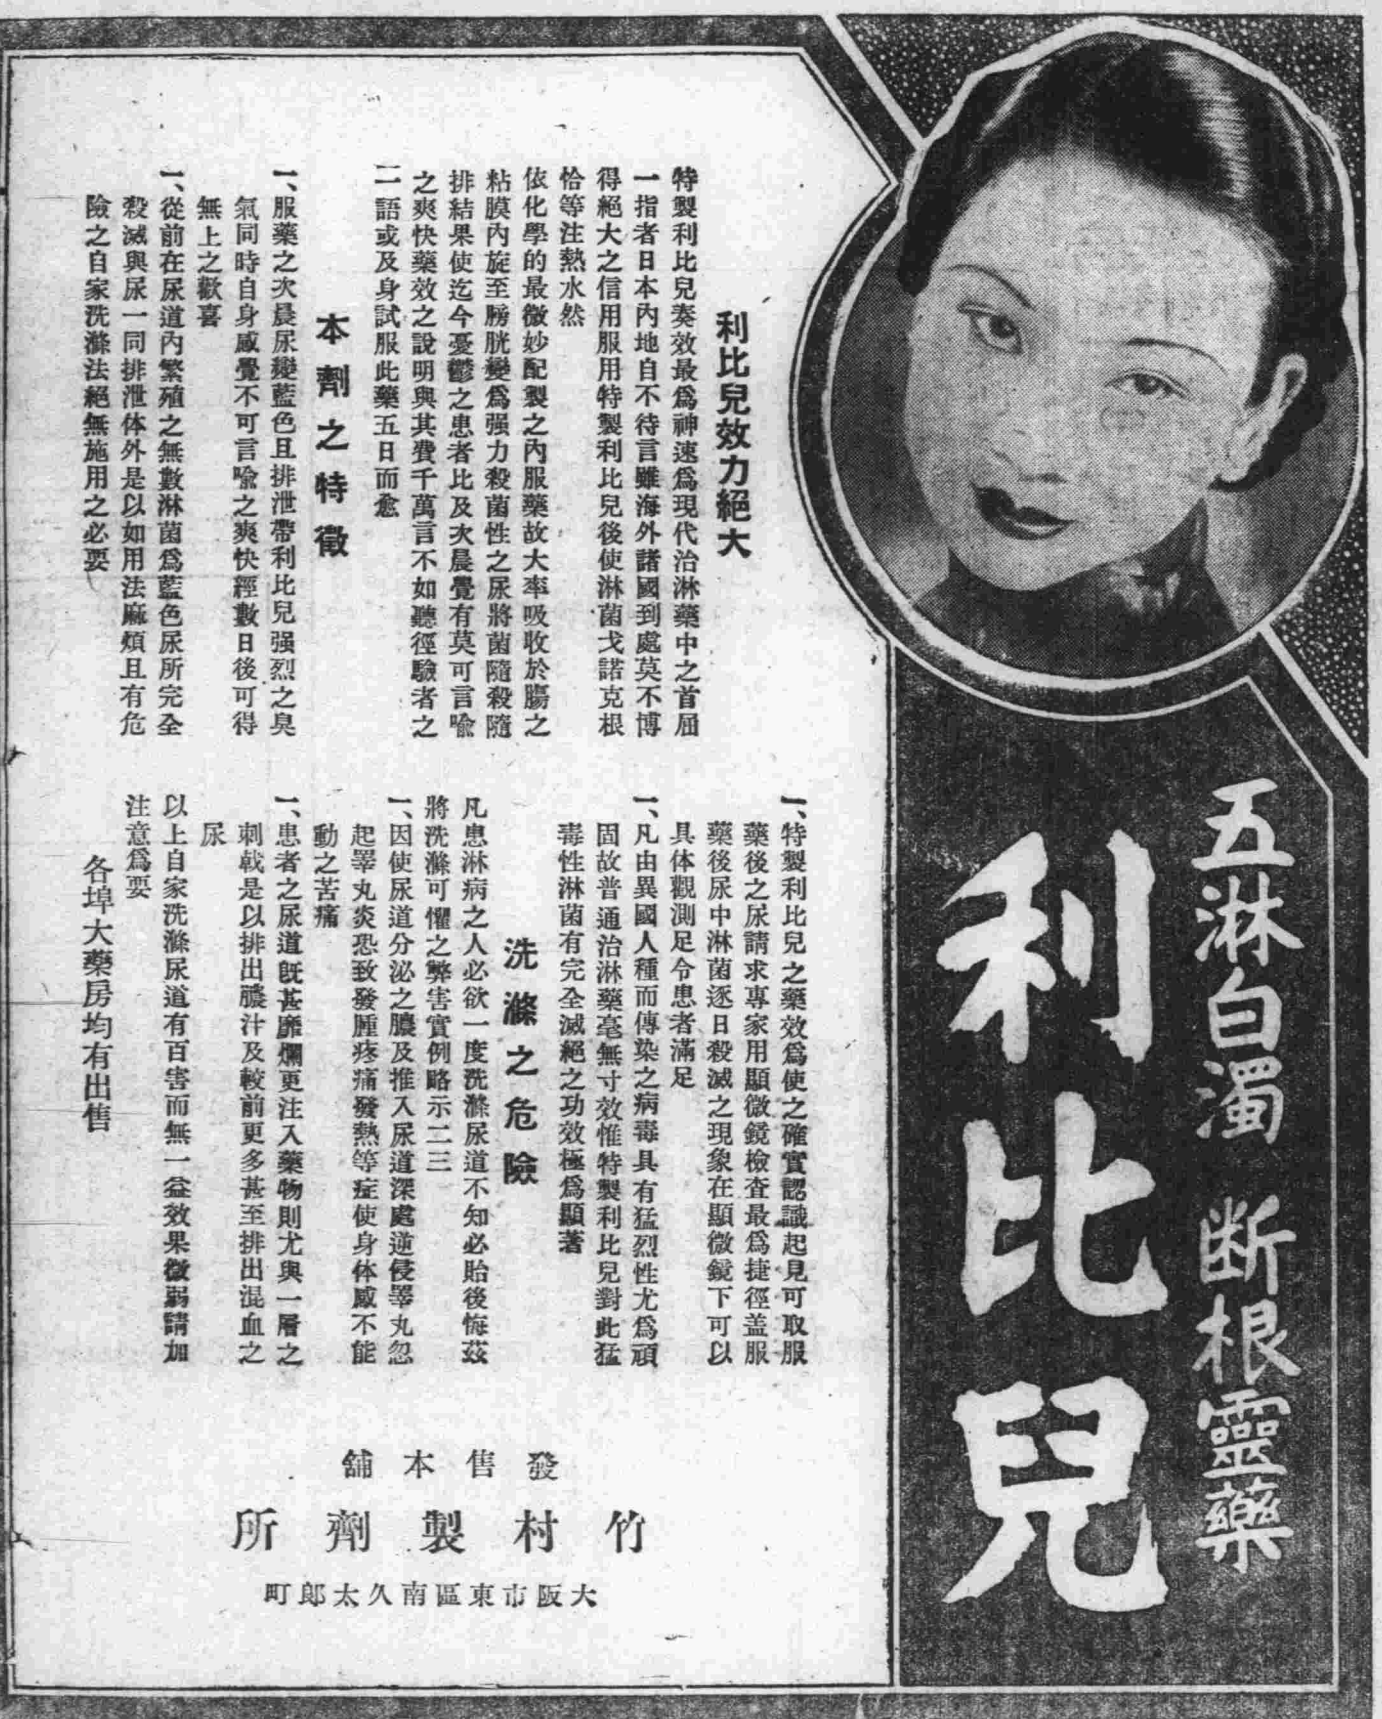 五淋白濁 断根靈藥
利比兒
利比兒效力絕大
特製利比兒奏效最爲神速爲現代治淋藥中之首屈
一指者日本內地自不待言雖海外諸國到處莫不博
得絕大之信用服用特製利比兒後使淋菌戈諾克根
恰等注熱水然
依化學的最微妙配製之內服藥故大率吸收於腸之
粘膜內旋至膀胱變爲强力殺菌性之尿將菌隨殺隨
排結果使迄今憂鬱之患者比及次晨覺有莫可言喩
之爽快藥效之說明與其費千萬言不如聽徑驗者之
二語或及身試服此藥五日而愈
本劑之特徵
一、服藥之次晨尿變藍色且排泄帶利比兒强烈之臭
氣同時自身感覺不可言喩之爽快經數日後可得
無上之歡喜
一、從前在尿道內繁殖之無數淋菌爲藍色尿所完全
殺滅與尿一同排泄体外是以如用法麻煩且有危
險之自家洗滌法絕無施用之必要
一、特製利比兒之藥效爲使之確實認識起見可取服
藥後之尿請求專家用顯微鏡檢查最爲捷徑盖服
藥後尿中淋菌逐日殺滅之現象在顯微鏡下可以
具体觀測足令患者滿足
一、凡由異國人種而傳染之病毒具有猛烈性尤爲頑
固故普通治淋藥毫無寸效惟特製利比兒對此猛
毒性淋菌有完全滅絕之功效極爲顯著
洗滌之危險
凡患淋病之人必欲一度洗滌尿道不知必貽後悔茲
將洗滌可懼之弊害實例略示二三
一、因使尿道分泌之膿及推入尿道深處逆侵睪丸忽
起睪丸炎恐致發腫疼痛發熱等症使身体感不能
動之苦痛
一、患者之尿道旣甚靡爛更注入藥物則尤與一層之
刺戟是以排出膿汁及較前更多甚至排出混血之
尿
以上自家洗滌尿道有百害而無一益效果微弱請加
注意爲要
各埠大藥房均有出售
發售本舖
竹村製劑所
大阪市東區南久太郎町